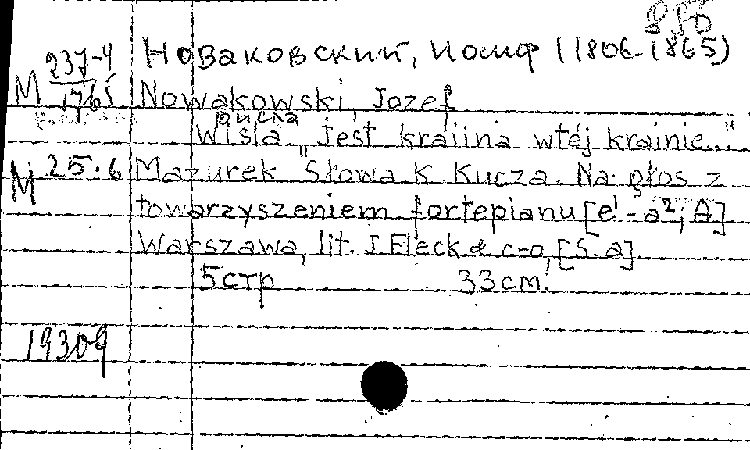 Новаковский, Иосиф (1806-1865)
М 237-4
1765
Nowakowski, Jozef
Wisła „Jest kraiina wtéj krainie..."
М 25:6
Mazurek Słowa K Kucza. Na głos z
towarzyszeniem fortepianu [e¹-a²; A]
Warszawa, lit. J. Fleck & c-o, [S.a]
5стр 33cm.
19309